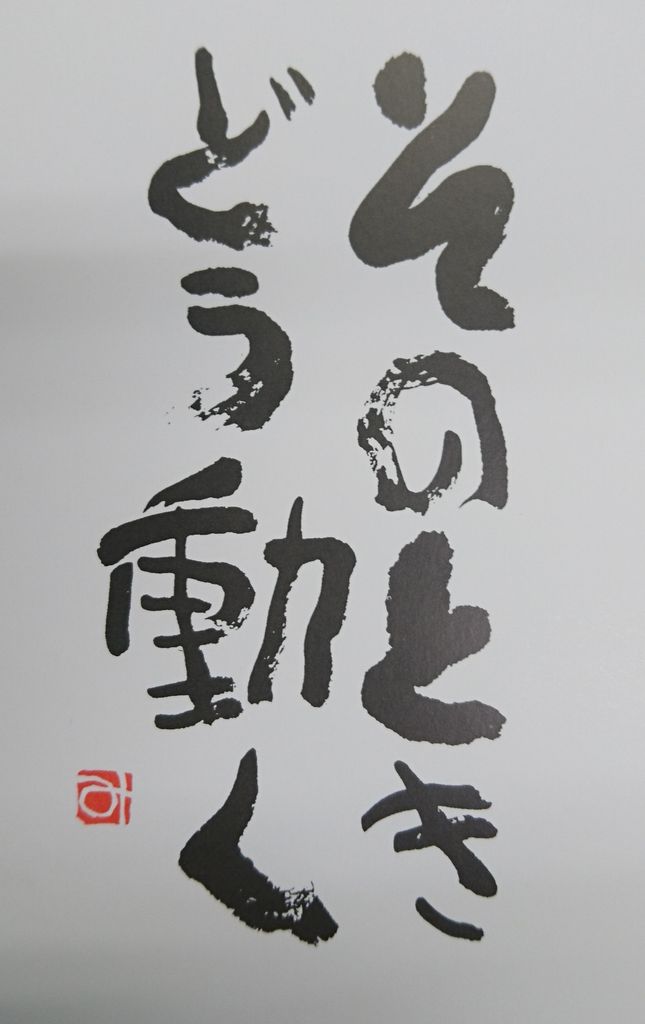 そのとき
どう動く